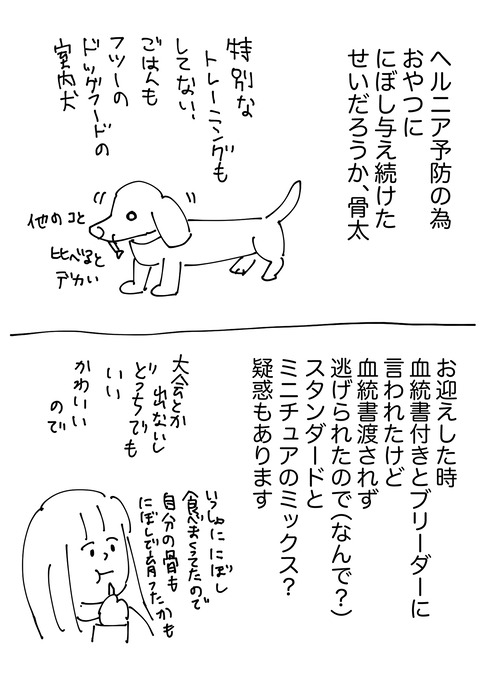 ヘルニア予防の為
おやつに
にぼし与え続けた
せいだろうか、骨太
特別な
トレーニングも
してない、
ごはんも
フツーの
ドッグフードの
室内犬
他のコと
比べると
デカい
お迎えした時
血統書付きとブリーダーに
言われたけど
血統書渡されず
逃げられたので(なんで?)
スタンダードと
ミニチュアのミックス?
疑惑もあります
大会とか
出ないし
どっちでも
いい
かわいい
ので
いっしょに にぼし
食べまくってたので
自分の骨も
にぼしで育ったかも